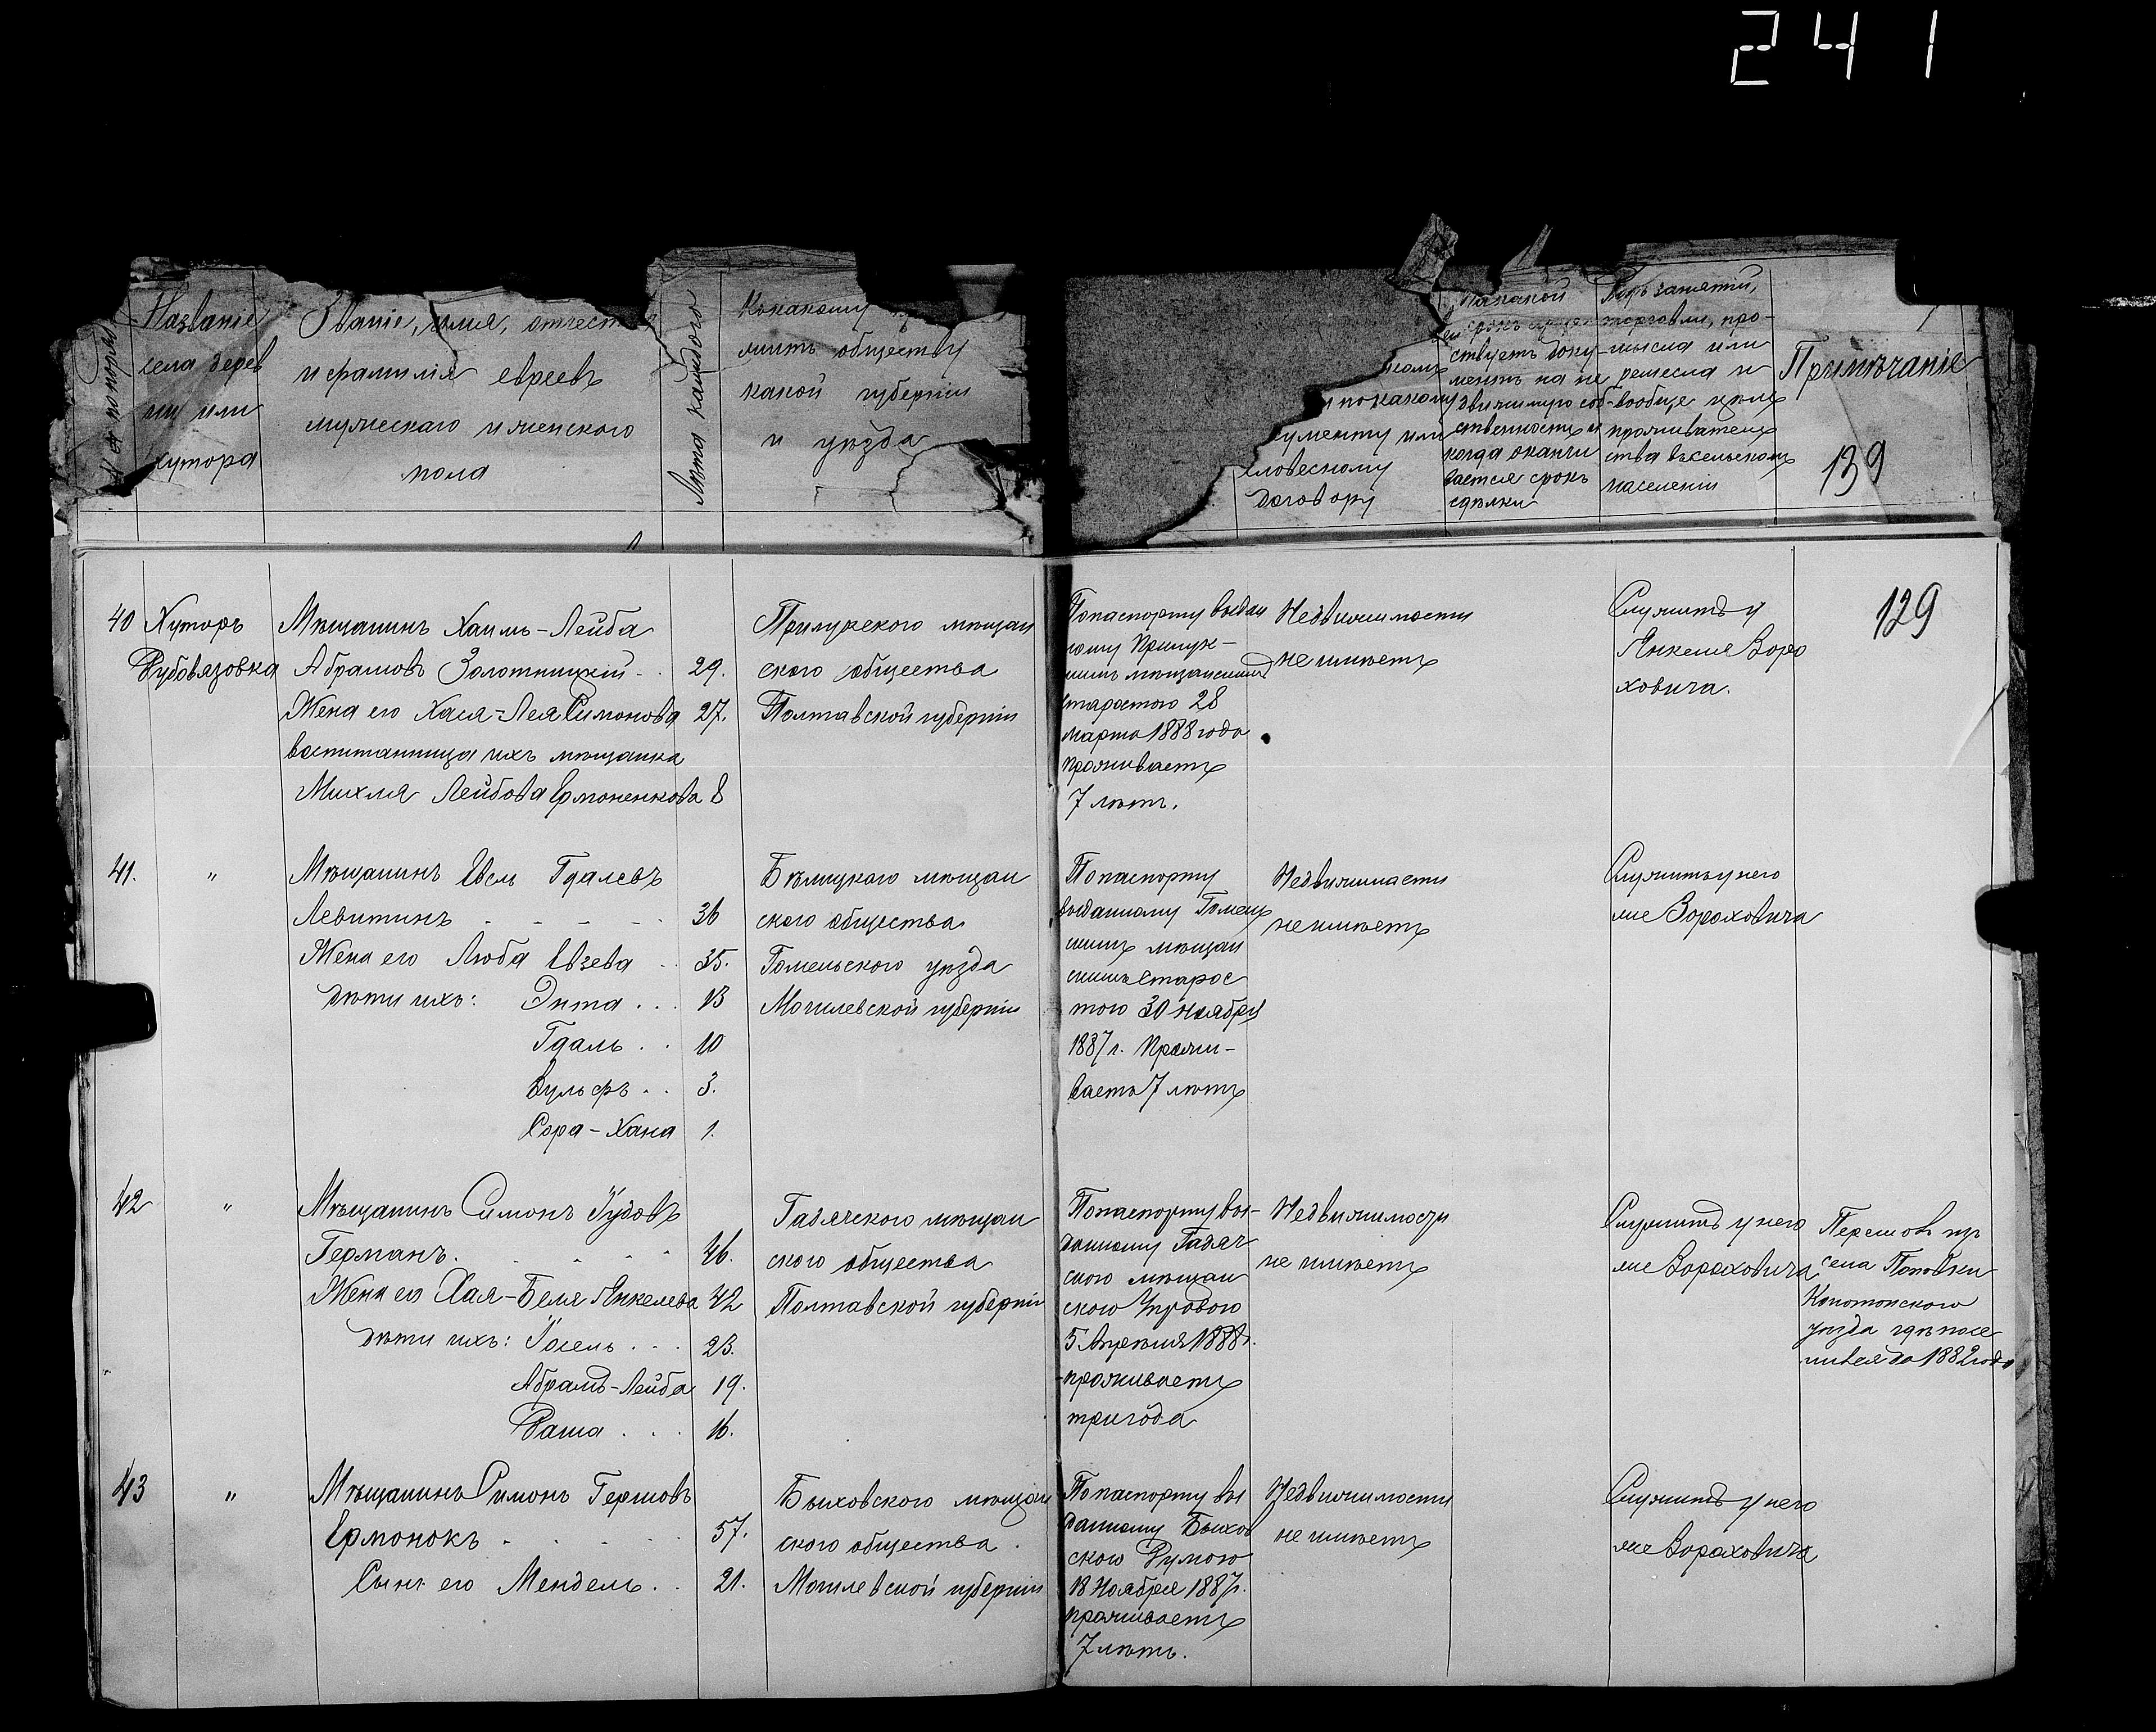 241
Названіе
села дерев
ни или
хутора
Званіе, имя, отчество
и фамилія евреевъ
мужескаго и женскаго
пола
Лѣта каждаго
Къ какому
жить обществу
какой губерніи
и уѣзда
и по какому
кументу или
словесному
договору
На какой
срокъ
ствуетъ доку-
ментъ на не
движимую соб-
ственность и
когда оканчи
вается срокъ
сдѣлки
Родъ занятій,
торговли, про-
мысла или
ремесла и
вообще цѣль
проживатель
ства въ сельскомъ
населеніи
Примѣчаніе
139
129
40 Хуторъ
Рубовязовка
Мѣщанинъ Хаимъ-Лейба
Абрамовъ Золотницкій - . 29.
Жена его Хася-Лея Симонова 27.
воспитанница ихъ мѣщанка
Михля Лейбова Ермоненкова 8
Прилукского мѣщан
ского общества
Полтавской губерніи
По паспорту выдан
ному Прилук-
скимъ мѣщанскимъ
старостою 28
марта 1888 года
проживаетъ
7 лѣтъ.
Недвижимости
не имѣетъ
Служитъ у
Янкеля Воро
ховича.
41. "
Мѣщанинъ Евсь Гдалевъ
Левитинъ - - - - - 36
Жена его Люба Евзева - . 35.
дѣти ихъ: Энта . . . 13
Гдаль . . 10
Вульфъ . . 3.
Сора-Хана 1.
Бѣлицкаго мѣщан
ского общества
Гомельского уѣзда
Могилевской губерніи
По паспорту
выданному Гомель
скимъ мѣщан
скимъ старос
тою 30 ноября
1887 г. Прожи-
ваетъ 7 лѣтъ
Недвижимости
не имѣетъ
Служитъ у него
же Вороховича
42 "
Мѣщанинъ Симонъ Іудовъ
Германъ. - - - 46.
Жена его Хая-Беля Янкелева 42
дѣти ихъ: Іосель . . . 23.
Абрамъ-Лейба 19.
Раша . . . 16.
Гадячского мѣщан
ского общества
Полтавской губерніи
По паспорту вы-
данному Гадяч
ского мѣщан
ского Управою
5 Апрѣля 1888 г.
проживаетъ
три года
Недвижимости
не имѣетъ
Служитъ у него
же Вороховича
Перешовъ изъ
села Поповки
Конотопского
уѣзда гдѣ посе
лився до 1882 года
43 "
Мѣщанинъ Симонъ Гершовъ
Ермонокъ - - - - 57.
Сынъ его Мендель . . 21.
Быховского мѣщан
ского общества.
Могилевской губерніи
По паспорту вы
данному Быхов
ского Думою
18 Ноября 1887 г.
проживаетъ
7 лѣтъ.
Недвижимости
не имѣетъ
Служитъ у него
же Вороховича